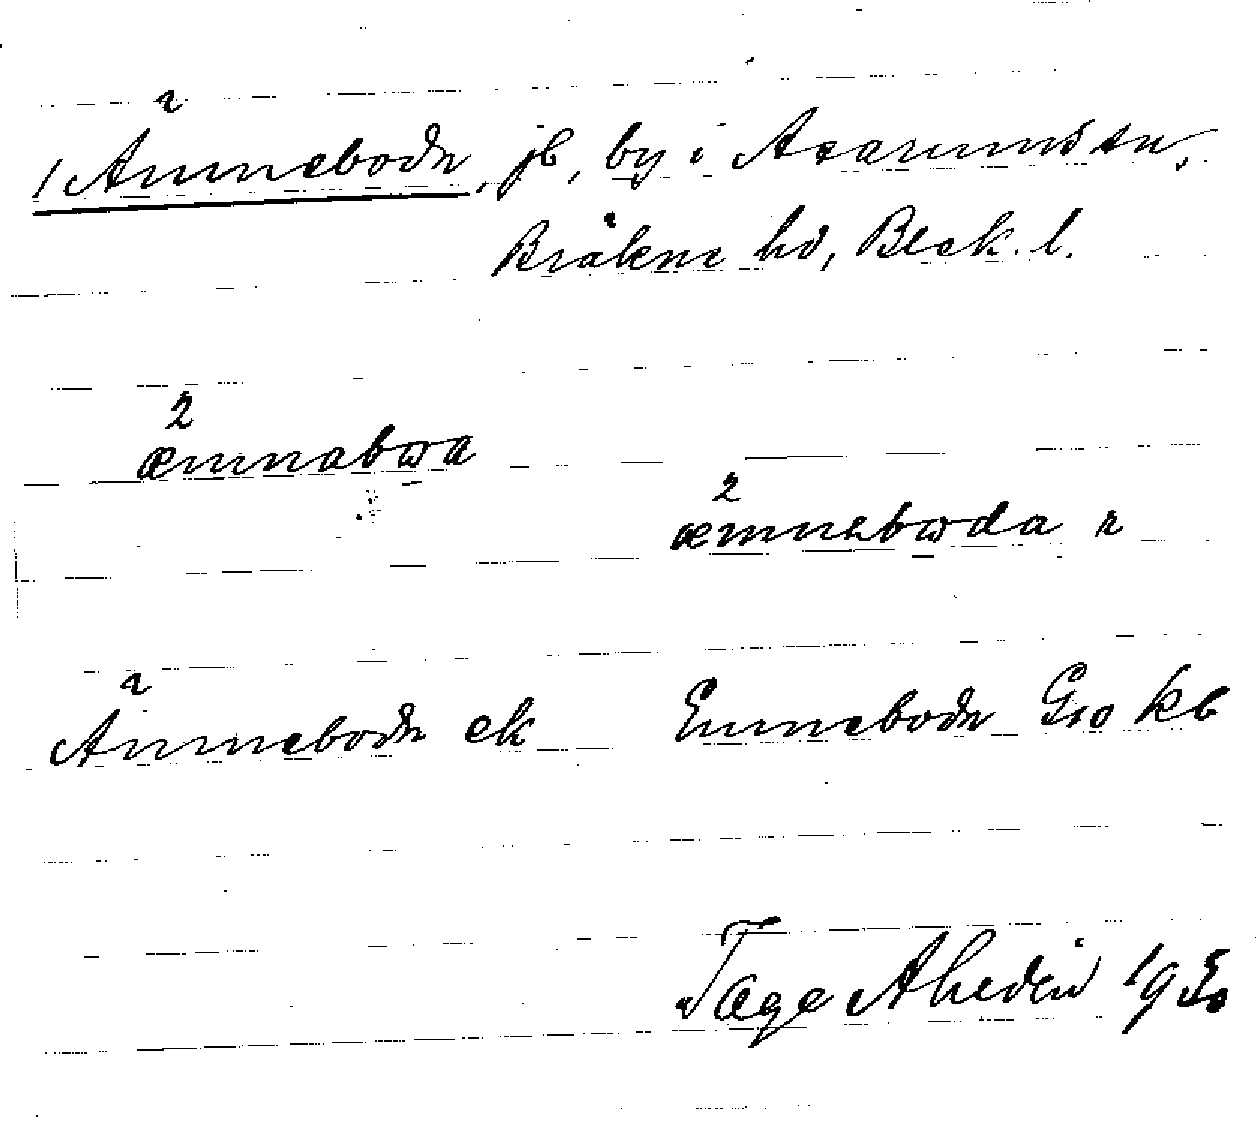 1 Ämneboda, jb, by i Asarums sn,
Bräkne hd, Blek. l.
2
æmnabωa
2
æmnebωda r
Ämneboda ek Emneboda Gso kb
Tage Ahldén 1950